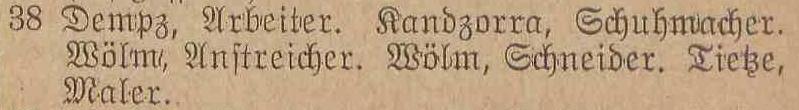 38 Dempz, Arbeiter. Kandzorra, Schuhmacher.
Wölm, Anstreicher. Wölm, Schneider. Tietze,
Maler.